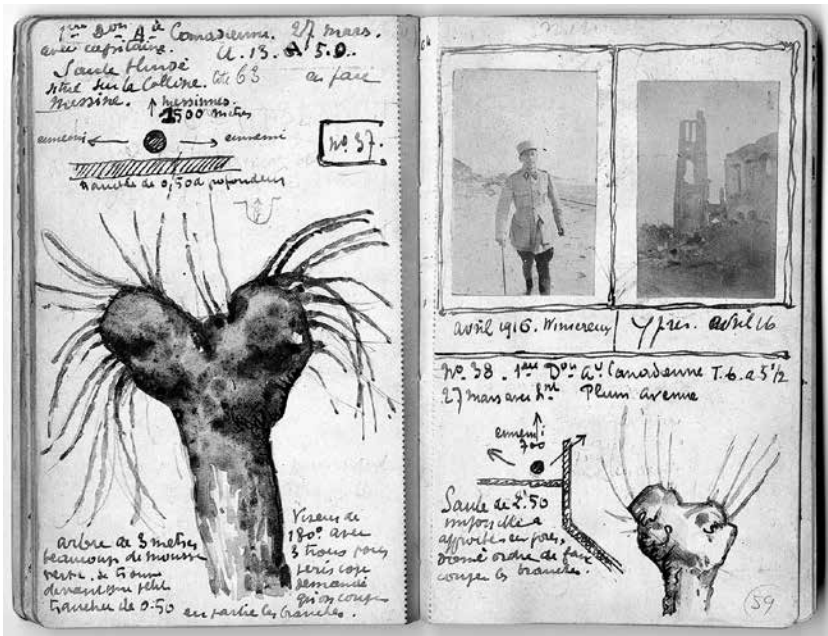 1ère Don Ae Canadienne. 27 mars.
avec capitaine. U.13. A 5.0.
Saule
situé sur la Colline. cote 63 en face
Messine.
↑ messinnes.
1500 mètres
ennemi ← → ennemi
no. 37.
tranchée de 0,50 de profondeur
arbre de 3 mètres
beaucoup de mousse
verte. se trouve
devant une petite
tranchée de 0.50
Viseur de
180° avec
3 trous pour
periscope
demandé
qu'on coupe
en partie les branches.
avril 1916. Wimereux
Ypres. avril 16
No 38. 1ère Don Ae Canadienne T.6.a 5 1/2
27 mars avec Plum Avenue
ennemi
700
Saule de 2.50
impossible à
approcher en jour,
donné ordre de faire
couper les branches.
59